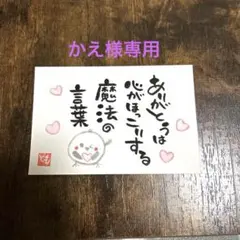 かえ様専用
ありがとうは
心がほっこりする
魔法の
言葉